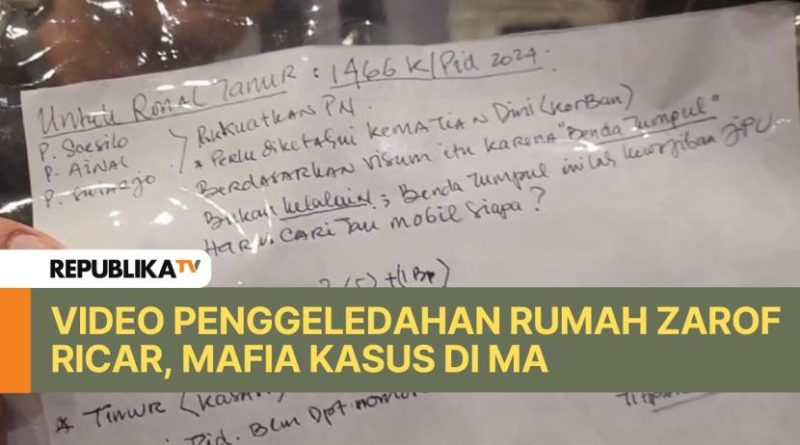 Untuk Ronal Tanur : 1466 K/Pid 2024.
P. Soesilo
P. AINAL
P. Sutarjo
Kuatkan PN.
* Perlu diketahui kematian Dini (korban)
Berdasarkan visum itu karena "Benda Tumpul"
Bukan kelalaian ; Benda Tumpul inilah kewajiban JPU
Harus cari tau mobil siapa ?
(5) + (1 BP)
REPUBLIKA TV
VIDEO PENGGELEDAHAN RUMAH ZAROF
RICAR, MAFIA KASUS DI MA
* TIMUR
Pid. Blm Dpt nomor